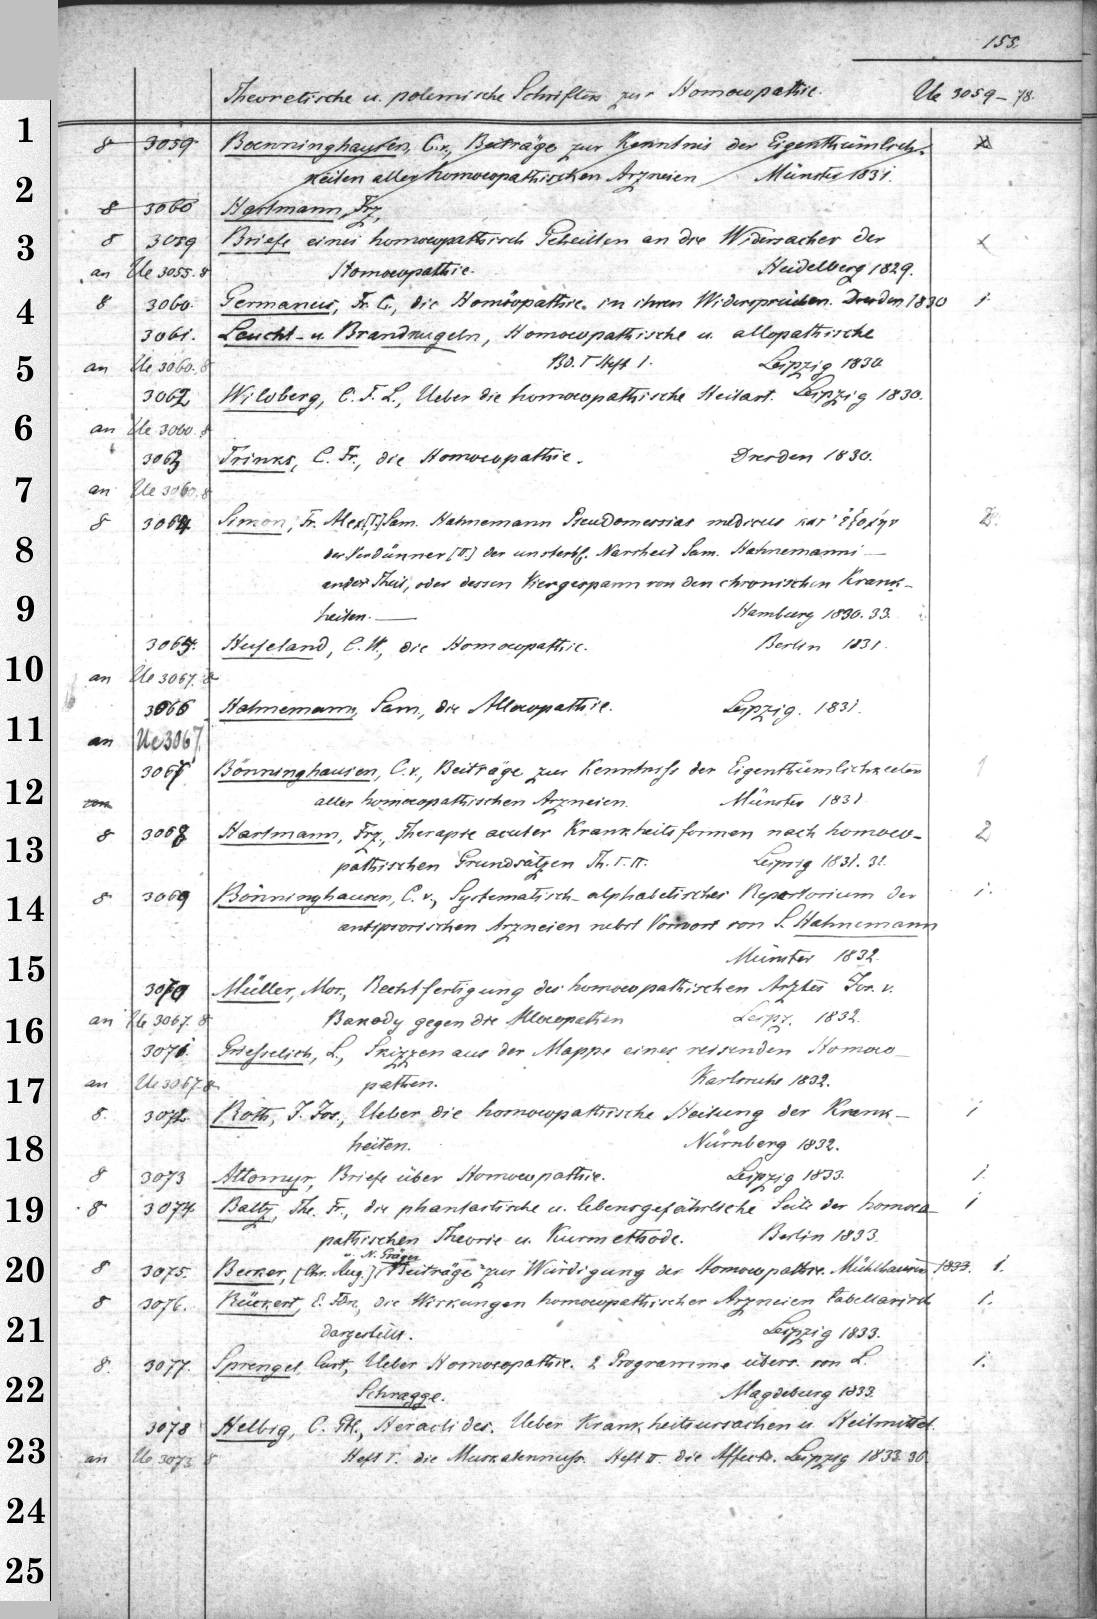 155.
Theoretische u. polemische Schriften zur Homoeopathie. Ue 3059–78.
1
8 3059 Boenninghausen, C. v., Beiträge zur Kenntnis der Eigenthümlich-
2
keiten aller homoeopathischen Arzneien Münster 1831.
8 3060 Hartmann, Frz,
3
8 3059 Briefe eines homoeopathisch Geheilten an die Widersacher der
an Ue 3055. 8 Homoeopathie. Heidelberg 1829.
4
8 3060. Germanus, Fr. C., die Homöopathie in ihren Widersprüchen. Dresden 1830 1.
3061. Leucht- u. Brandkugeln, Homoeopathische u. allopathische
5
an Ue 3060. 8 Bd. I Heft 1. Leipzig 1830
3062 Wilsberg, C. F. L., Ueber die homoeopathische Heilart. Leipzig 1830.
6
an Ue 3060. 8
3063 Trinks, C. Fr., die Homoeopathie. Dresden 1830.
7
an Ue 3060. 8
8 3064 Simon, Fr. Alex, [I.] Sam. Hahnemann Pseudomessias medicus κατ' ἐξοχήν
8
der Verdünner [II.] der unsterbl. Narrheit Sam. Hahnemanni —
ander Theil, oder dessen Viergespann von den chronischen Krank-
9
heiten. — Hamburg 1830. 33.
3065. Hufeland, C. W., die Homoeopathie. Berlin 1831.
10
an Ue 3067. 8
3066 Hahnemann, Sam., die Alloeopathie. Leipzig. 1831.
11
an Ue 3067.
3067 Bönninghausen, C. v., Beiträge zur Kenntniss der Eigenthümlichkeiten 1
12
aller homoeopathischen Arzneien. Münster 1831
8 3068 Hartmann, Frz., Therapie acuter Krankheitsformen nach homoeo- 2
13
pathischen Grundsätzen Th. I. II. Leipzig 1831. 32.
8 3069 Bönninghausen, C. v., Systematisch-alphabetisches Repertorium der 1.
14
antipsorischen Arzneien nebst Vorwort von S. Hahnemann
15
Münster 1832.
3070 Müller, Mor., Rechtfertigung des homoeopathischen Arztes Jos. v.
16
an Ue 3067. 8 Bakody gegen die Alloeopathen Leipz. 1832.
3071. Griesselich, L., Skizzen aus der Mappe eines reisenden Homoeo-
17
an Ue 3067. 8 pathen. Karlsruhe 1832.
8. 3072 Roth, J. Jos., Ueber die homoeopathische Heilung der Krank- 1
18
heiten. Nürnberg 1832.
8 3073 Attomyr, Briefe über Homoeopathie. Leipzig 1833. 1.
19
8 3074 Baltz, Th. Fr., die phantastische u. lebensgefährliche Seite der homoeo- 1
pathischen Theorie u. Kurmethode. Berlin 1833.
u. N. Gräger
20
8 3075. Becker, [Chr. Aug.] Beiträge zur Würdigung der Homoeopathie. Mühlhausen 1833. 1.
8 3076. Rückert, E. Fdn., die Wirkungen homoeopathischer Arzneien tabellarisch 1.
21
dargestellt. Leipzig 1833.
8. 3077. Sprengel, Curt, Ueber Homoeopathie. 2 Programme übers. von L. 1.
22
Schragge. Magdeburg 1833
3078 Helbig, C. Th., Heraclides. Ueber Krankheitsursachen u. Heilmittel.
23
an Ue 3073 8 Heft I. die Muskatennuss. Heft II. die Affecte. Leipzig 1833. 36.
24
25